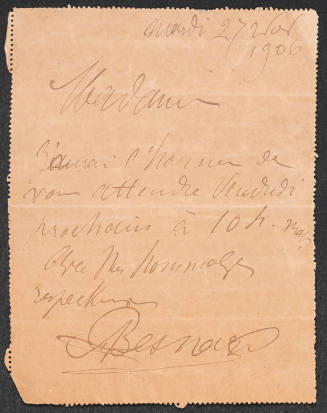 mardi 27 Nov
1906
Madame
J'aurai l'honneur de
vous attendre Vendredi
prochain à 10 h. mat.
Avec mes hommages
respectueux
ABesnard